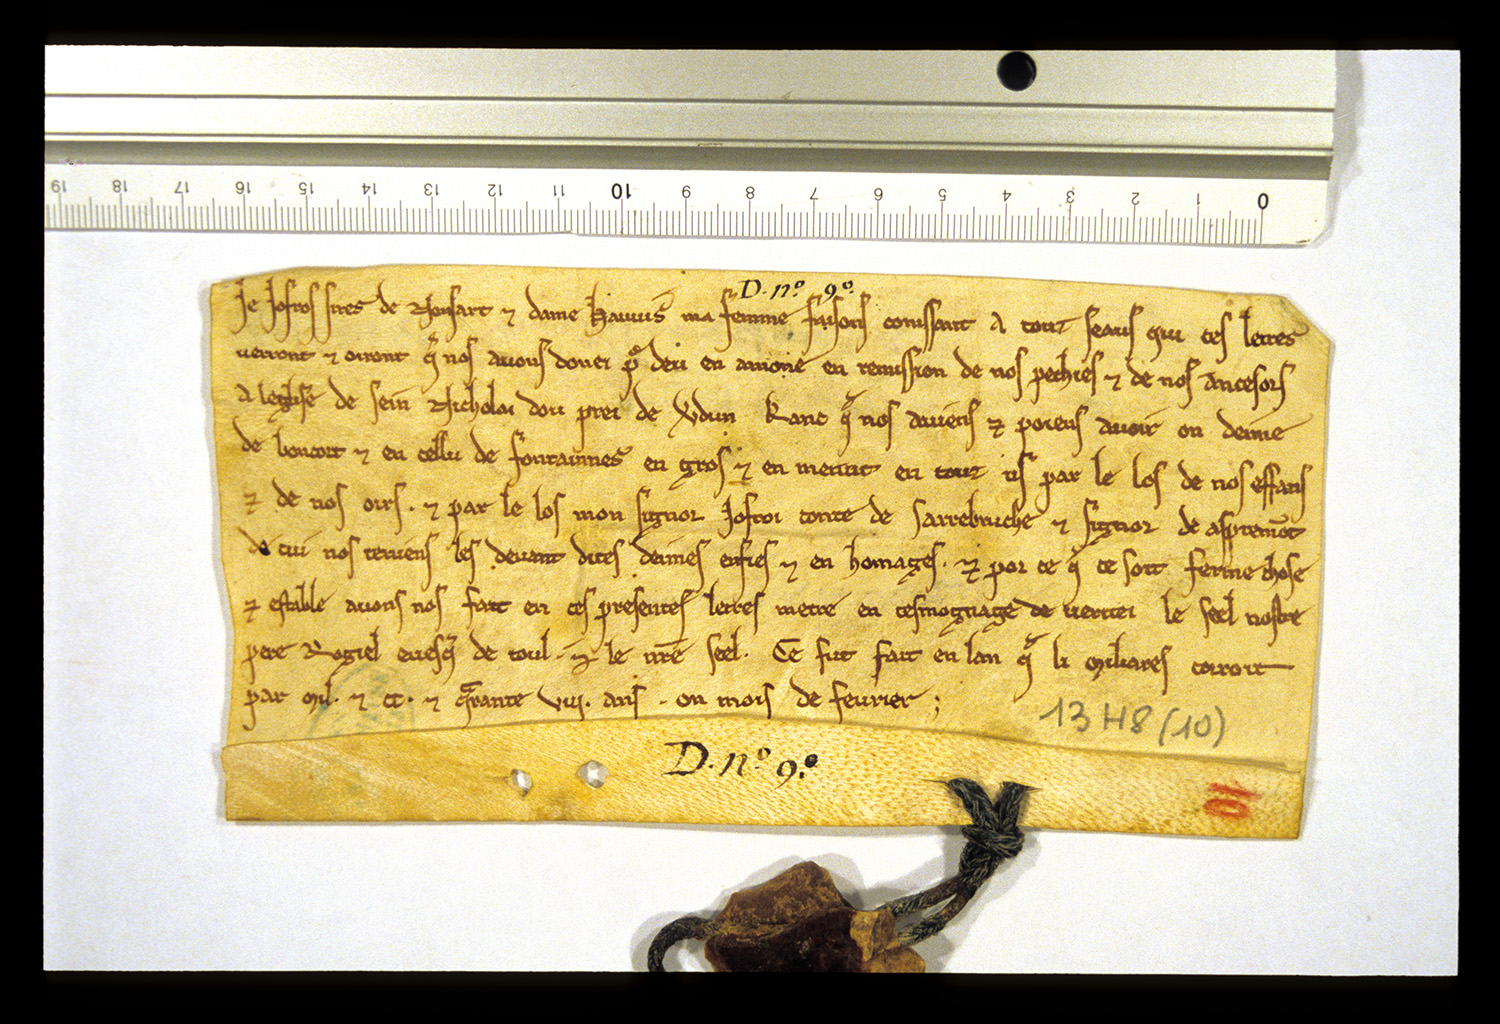 19 18 17 16 15 14 13 12 11 10 9 8 7 6 5 4 3 2 1 0
D. nº. 9º.
Je Jofrois sires de  ⁊ dame  ma femme faisons conissant A touz seaus qui ces lettres
verront ⁊ oiront q̃ nos avons donei p̲ᵒ deu en amone en remission de nos pechies ⁊ de nos Ancesors
A leglise de sein Nicholai dou prei de Vdun Kanc q̃ nos aviens ⁊ poiens avoir on deime
de boncort ⁊ en cellu de fontainnes en gros ⁊ en menut en touz  par le los de nos effans
⁊ de nos oirs . ⁊ par le los mon signor Jofroi conte de Sarrebruche ⁊ signor de aspremōt
de cui nos teniens les devant dites deimes enfies ⁊ en homages . ⁊ por ce q̃ ce soit ferme chose
⁊ estable avons nos fait en ces presentes letres metre en tesmognage de veritei le seel nostre
pere Rogiel evesq̃ de toul . ⁊ le nr̄e seel . Ce fut fait en lan q̃ li miliares corroit
par mil . ⁊ cc . ⁊ q̃rante viij . ans . on mois de fevrier ;
13 H8 (10)
D. nº 9.º
10